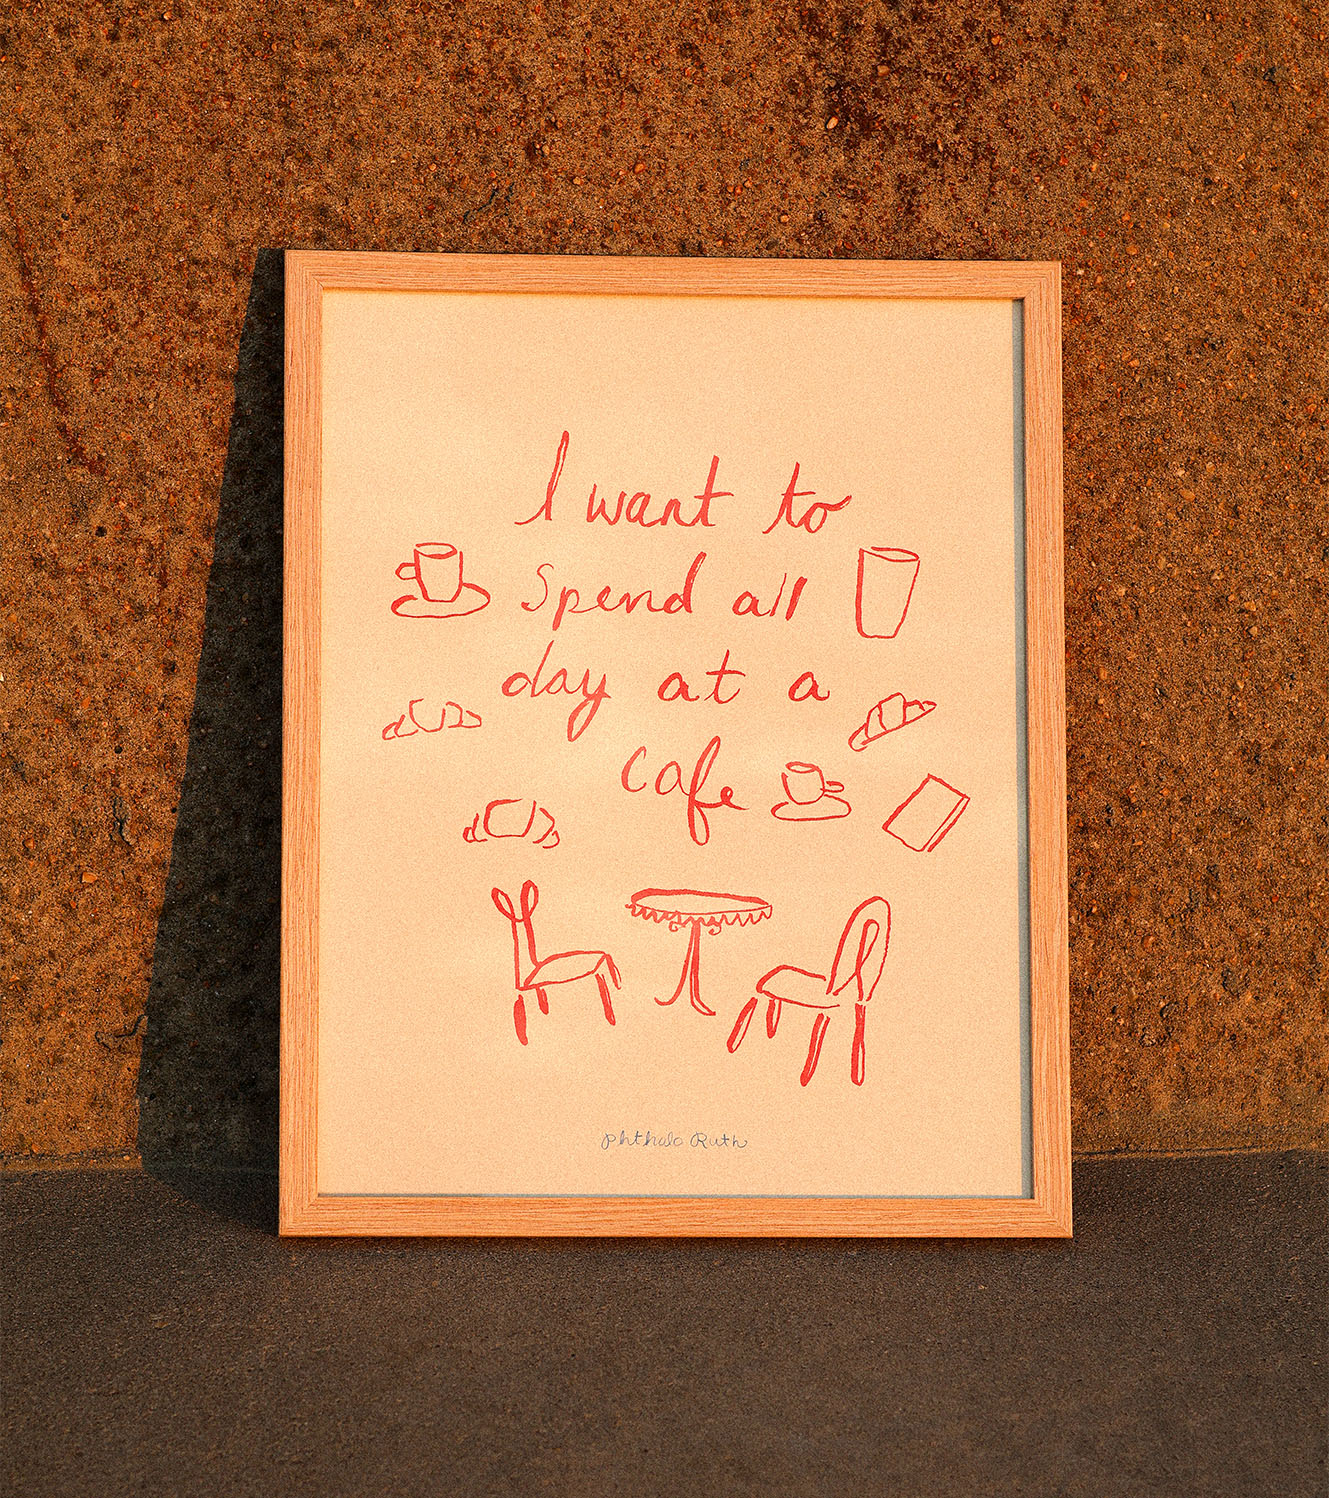 I want to
Spend all
day at a
cafe
Phthalo Ruth